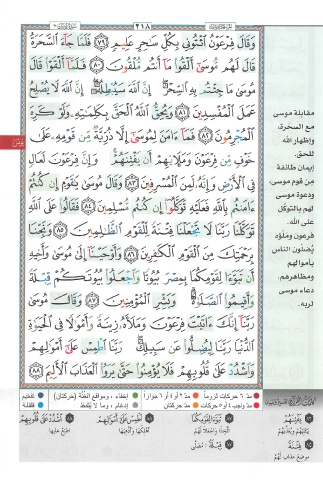 ٢١٨
وَقَالَ فِرْعَوْنُ ائْتُونِي بِكُلِّ سَاحِرٍ عَلِيمٍ ٧٩ فَلَمَّا جَاءَ السَّحَرَةُ
قَالَ لَهُم مُّوسَىٰ أَلْقُوا مَا أَنتُم مُّلْقُونَ ٨٠ فَلَمَّا أَلْقَوْا قَالَ
مُوسَىٰ مَا جِئْتُم بِهِ السِّحْرُ إِنَّ اللَّهَ سَيُبْطِلُهُ إِنَّ اللَّهَ لَا يُصْلِحُ
عَمَلَ الْمُفْسِدِينَ ٨١ وَيُحِقُّ اللَّهُ الْحَقَّ بِكَلِمَاتِهِ وَلَوْ كَرِهَ
الْمُجْرِمُونَ ٨٢ فَمَا آمَنَ لِمُوسَىٰ إِلَّا ذُرِّيَّةٌ مِّن قَوْمِهِ عَلَىٰ
خَوْفٍ مِّن فِرْعَوْنَ وَمَلَئِهِمْ أَن يَفْتِنَهُمْ وَإِنَّ فِرْعَوْنَ لَعَالٍ
فِي الْأَرْضِ وَإِنَّهُ لَمِنَ الْمُسْرِفِينَ ٨٣ وَقَالَ مُوسَىٰ يَا قَوْمِ إِن كُنتُمْ
آمَنتُم بِاللَّهِ فَعَلَيْهِ تَوَكَّلُوا إِن كُنتُم مُّسْلِمِينَ ٨٤ فَقَالُوا عَلَى اللَّهِ
تَوَكَّلْنَا رَبَّنَا لَا تَجْعَلْنَا فِتْنَةً لِّلْقَوْمِ الظَّالِمِينَ ٨٥ وَنَجِّنَا
بِرَحْمَتِكَ مِنَ الْقَوْمِ الْكَافِرِينَ ٨٦ وَأَوْحَيْنَا إِلَىٰ مُوسَىٰ وَأَخِيهِ
أَن تَبَوَّءَا لِقَوْمِكُمَا بِمِصْرَ بُيُوتًا وَاجْعَلُوا بُيُوتَكُمْ قِبْلَةً
وَأَقِيمُوا الصَّلَاةَ وَبَشِّرِ الْمُؤْمِنِينَ ٨٧ وَقَالَ مُوسَىٰ
رَبَّنَا إِنَّكَ آتَيْتَ فِرْعَوْنَ وَمَلَأَهُ زِينَةً وَأَمْوَالًا فِي الْحَيَاةِ
الدُّنْيَا رَبَّنَا لِيُضِلُّوا عَن سَبِيلِكَ رَبَّنَا اطْمِسْ عَلَىٰ أَمْوَالِهِمْ
وَاشْدُدْ عَلَىٰ قُلُوبِهِمْ فَلَا يُؤْمِنُوا حَتَّىٰ يَرَوُا الْعَذَابَ الْأَلِيمَ ٨٨
مقابلة موسى
مع السحرة،
وإظهار الله
للحق.
إيمان طائفة
من قوم موسى،
ودعوة موسى
لهم بالتوكل
على الله.
فرعون وملؤه
يُضلون الناس
بأموالهم
ومظاهرهم.
دعاء موسى
لربه.
يونس
مدّ ٦ حركات لزوماً
مدّ ٢ أو ٤ أو ٦ جوازاً
إخفاء، ومواقع الغُنَّة (حركتان)
تفخيم
مدّ واجب ٤ أو ٥ حركات
مدّ حركتان
إدغام، وما لا يُلفَظ
قلقلة